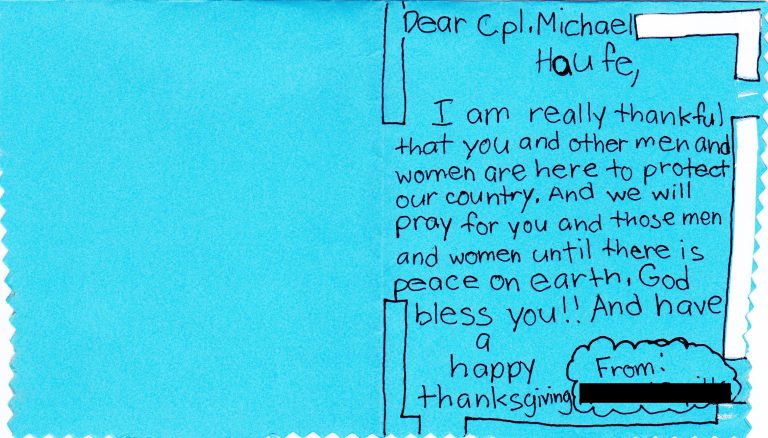 Dear Cpl. Michael
Haufe,
I am really thankful
that you and other men and
women are here to protect
our country. And we will
pray for you and those men
and women until there is
peace on earth. God
bless you!! And have
a
happy
thanksgiving
From: